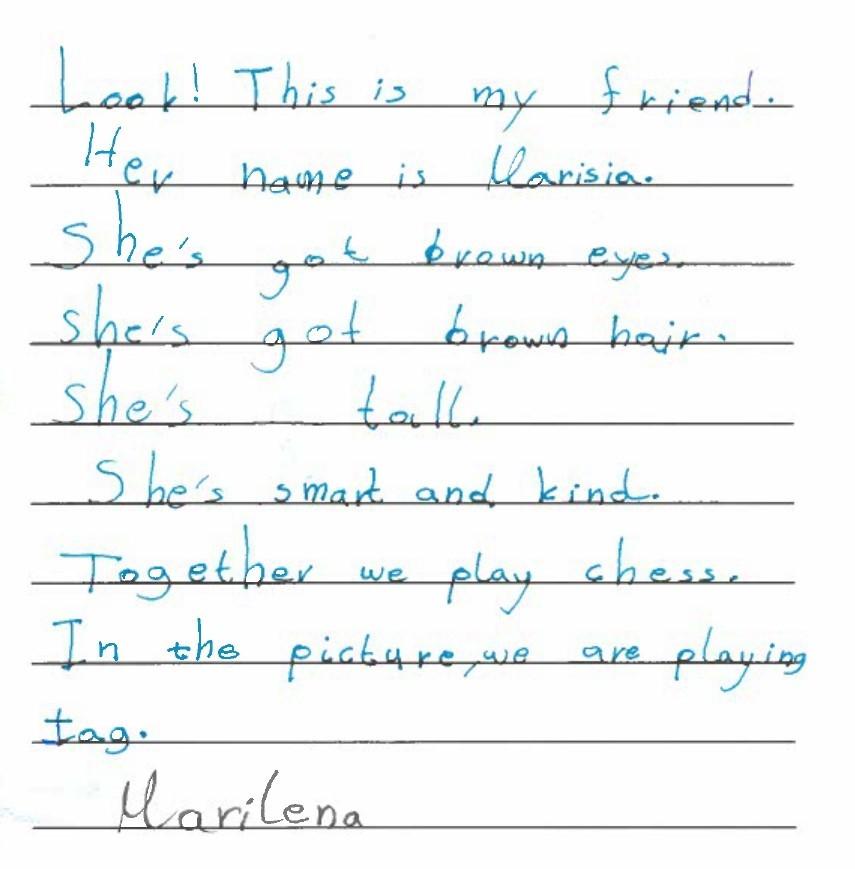 Look! This is my friend.
Her name is Marisia.
She's got brown eyes.
she's got brown hair.
She's tall.
She's smart and kind.
Together we play chess.
In the picture, we are playing
tag.
Marilena